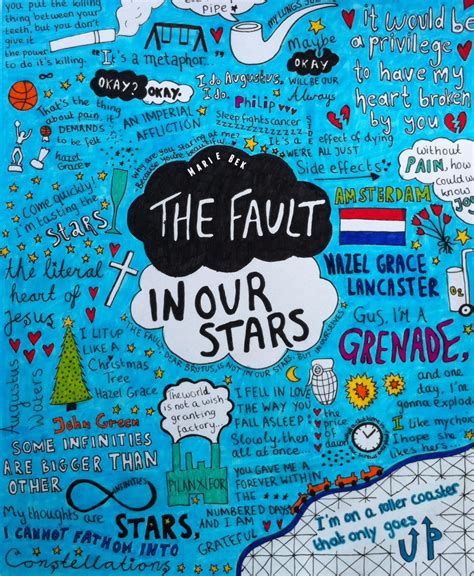 you put the killing
thing between your
teeth, but you don't
give it
the power
to do it's killing.
PIPE
"It's a metaphor.."
MY LUNGS
Maybe
OKAY
WILL BE OUR
Always
it would be
a privilege
to have my
heart broken
by you
OKAY?
OKAY.
I do, Augustus.
I do.
Philip
Sleep fights cancer
zzzzz
That's the thing
about pain, it
DEMANDS
to be felt
Hazel
Grace
AN IMPERIAL
AFFLICTION
Why are you staring at me
Because you're beautiful
MARIE BEK
It's a
effect of dying
WE'RE ALL JUST
Side effects
Without
PAIN, how
could we
know
JOY
Come quickly!
I'm tasting the
STARS
THE FAULT
IN OUR
STARS
THE FAULT, DEAR BRUTUS, IS NOT IN OUR STARS, BUT
AMSTERDAM
HAZEL GRACE
LANCASTER
the literal
heart of
Jesus
Gus, I'm A
GRENADE,
and
one day,
I'm
gonna explode
I LIT UP
LIKE A
Christmas
Tree
Hazel Grace
Augustus
Waters
The world
is not a wish
granting
factory..
I FELL IN LOVE
THE WAY YOU
FALL ASLEEP
Slowly, then
all at once...
the
price
of
dawn
I like my choices
I hope she
likes hers..
John Green
SOME INFINITIES
ARE BIGGER THAN
OTHER
INFINITIES
YOU GAVE ME A
FOREVER
WITHIN THE
NUMBERED DAYS
AND I AM
GRATEFUL
My thoughts are
STARS,
I CANNOT FATHOM INTO
Constellations
I'm on a roller coaster
that only goes
UP